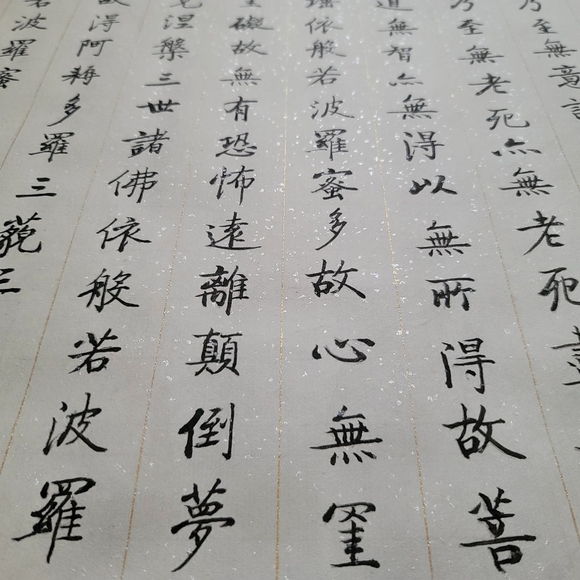 乃至無意識
乃至無老死亦無老死盡
道無智亦無得以無所得故菩
埵依般若波羅蜜多故心無罣
礙故無有恐怖遠離顛倒夢
涅槃三世諸佛依般若波羅
故得阿耨多羅三藐三
若波羅蜜